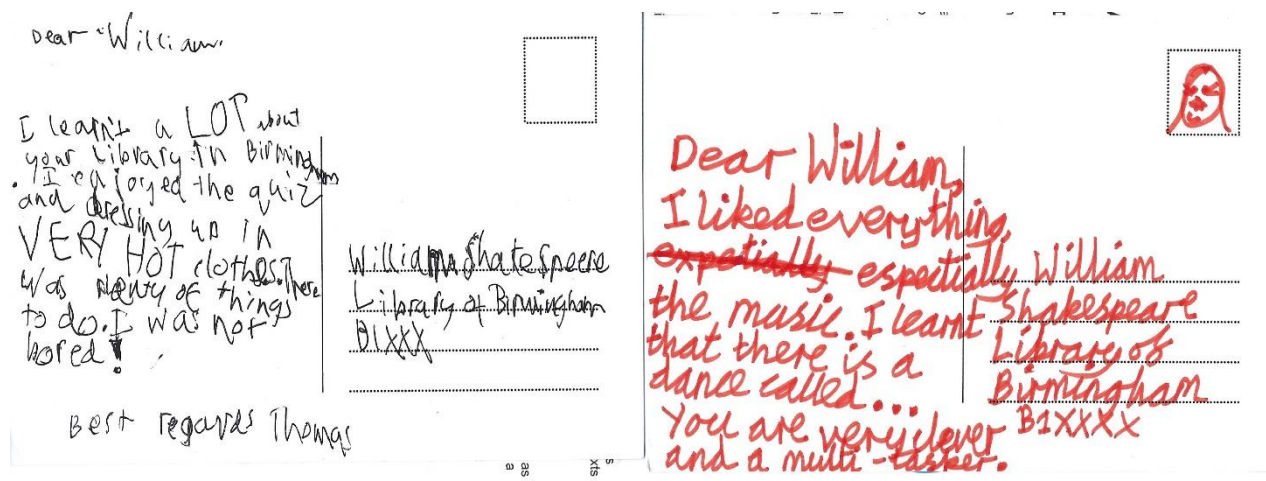 Dear William.
I learnt a LOT about
your Library in Birmingham
. I enjoyed the quiz
and dressing up in
VERY HOT clothes. There
was plenty of things
to do. I was not
bored!
Best regards Thomas
William Shakespeere
Library of Birmingham
B1XXX
Dear William,
I liked everything,
expetially espectially
the music. I learnt
that there is a
dance called...
You are very clever
and a multi-tasker.
William
Shakespeare
Library of
Birmingham
B1XXXX
as
a
s
xts